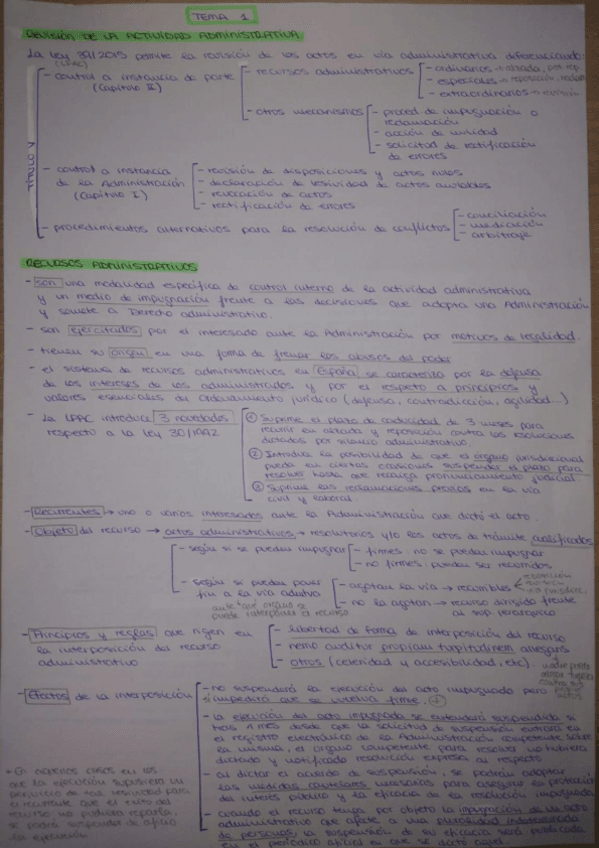 TEMA 1
REVISIÓN DE LA ACTIVIDAD ADMINISTRATIVA
La Ley 39/2015 permite la revisión de los actos en vía administrativa diferenciando:
(LPAC)
TÍTULO V
- control a instancia de parte
(Capítulo II)
- recursos administrativos
- ordinarios → alzada, pot rep
- especiales → reposición,
- extraordinarios → revisión
- otros mecanismos
- proced. de impugnación o
reclamación
- acción de nulidad
- solicitud de rectificación
de errores
- control a instancia
de la Administración
(Capítulo I)
- revisión de disposiciones y actos nulos
- declaración de lesividad de actos anulables
- revocación de actos
- rectificación de errores
- procedimientos alternativos para la resolución de conflictos
- conciliación
- mediación
- arbitraje
RECURSOS ADMINISTRATIVOS
- son una modalidad específica de control interno de la actividad administrativa
y un medio de impugnación frente a las decisiones que adopta una Administración
y somete a Derecho administrativo.
- son ejercitados por el interesado ante la Administración por motivos de legalidad.
- tienen su origen en una forma de frenar los abusos del poder
- el sistema de recursos administrativos en España se caracteriza por la defensa
de los intereses de los administrados y por el respeto a principios y
valores esenciales del Ordenamiento jurídico (defensa, contradicción, agilidad...)
- La LPAC introduce 3 novedades
respecto a la Ley 30/1992
① Suprime el plazo de caducidad de 3 meses para
recurrir en alzada y reposición contra las resoluciones
dictadas por silencio administrativo
② Introduce la posibilidad de que el órgano jurisdiccional
pueda en ciertas ocasiones suspender el plazo para
resolver hasta que recaiga pronunciamiento judicial
③ Suprime las reclamaciones previas en la vía
civil y laboral.
- Recurrentes → uno o varios interesados ante la Administración que dictó el acto
- Objeto del recurso → actos administrativos → resolutorios y/o los actos de trámite cualificados
- según si se pueden impugnar
- firmes: no se pueden impugnar
- no firmes: pueden ser recurridos
- según si pueden poner
fin a la vía admtva
- agotan la vía → recurribles
reposición
- no la agotan → recurso dirigido frente
al sup. jerárquico
ante qué órgano se
puede interponer el recurso
- Principios y reglas que rigen en
la interposición del recurso
administrativo
- libertad de forma de interposición del recurso
- nemo auditur propriam turpitudinem allegans
- otros (celeridad y accesibilidad, etc)
nadie puede
contra sus
propios
actos
- Efectos de la interposición
- no suspenderá la ejecución del acto impugnado pero
si impedirá que se vuelva firme.
- la ejecución del acto impugnado se entenderá suspendida si
tras 1 mes desde que la solicitud de suspensión entrara en
el registro electrónico de la Administración competente sobre
la misma, el órgano competente para resolver no hubiera
dictado y notificado resolución expresa al respecto
- al dictar el acuerdo de suspensión, se podrán adoptar
las medidas cautelares necesarias para asegurar la protección
del interés público y la eficacia de la resolución impugnada
- cuando el recurso tenga por objeto la impugnación de un acto
administrativo que afecte a una pluralidad indeterminada
de personas, la suspensión de su eficacia será publicada
en el periódico oficial en que se dictó aquel.
- En aquellos casos en los
que la ejecución supusiera un
perjuicio de tal
el recurrente que el éxito del
recurso no pudiera repararla,
se podrá suspender de oficio
la ejecución